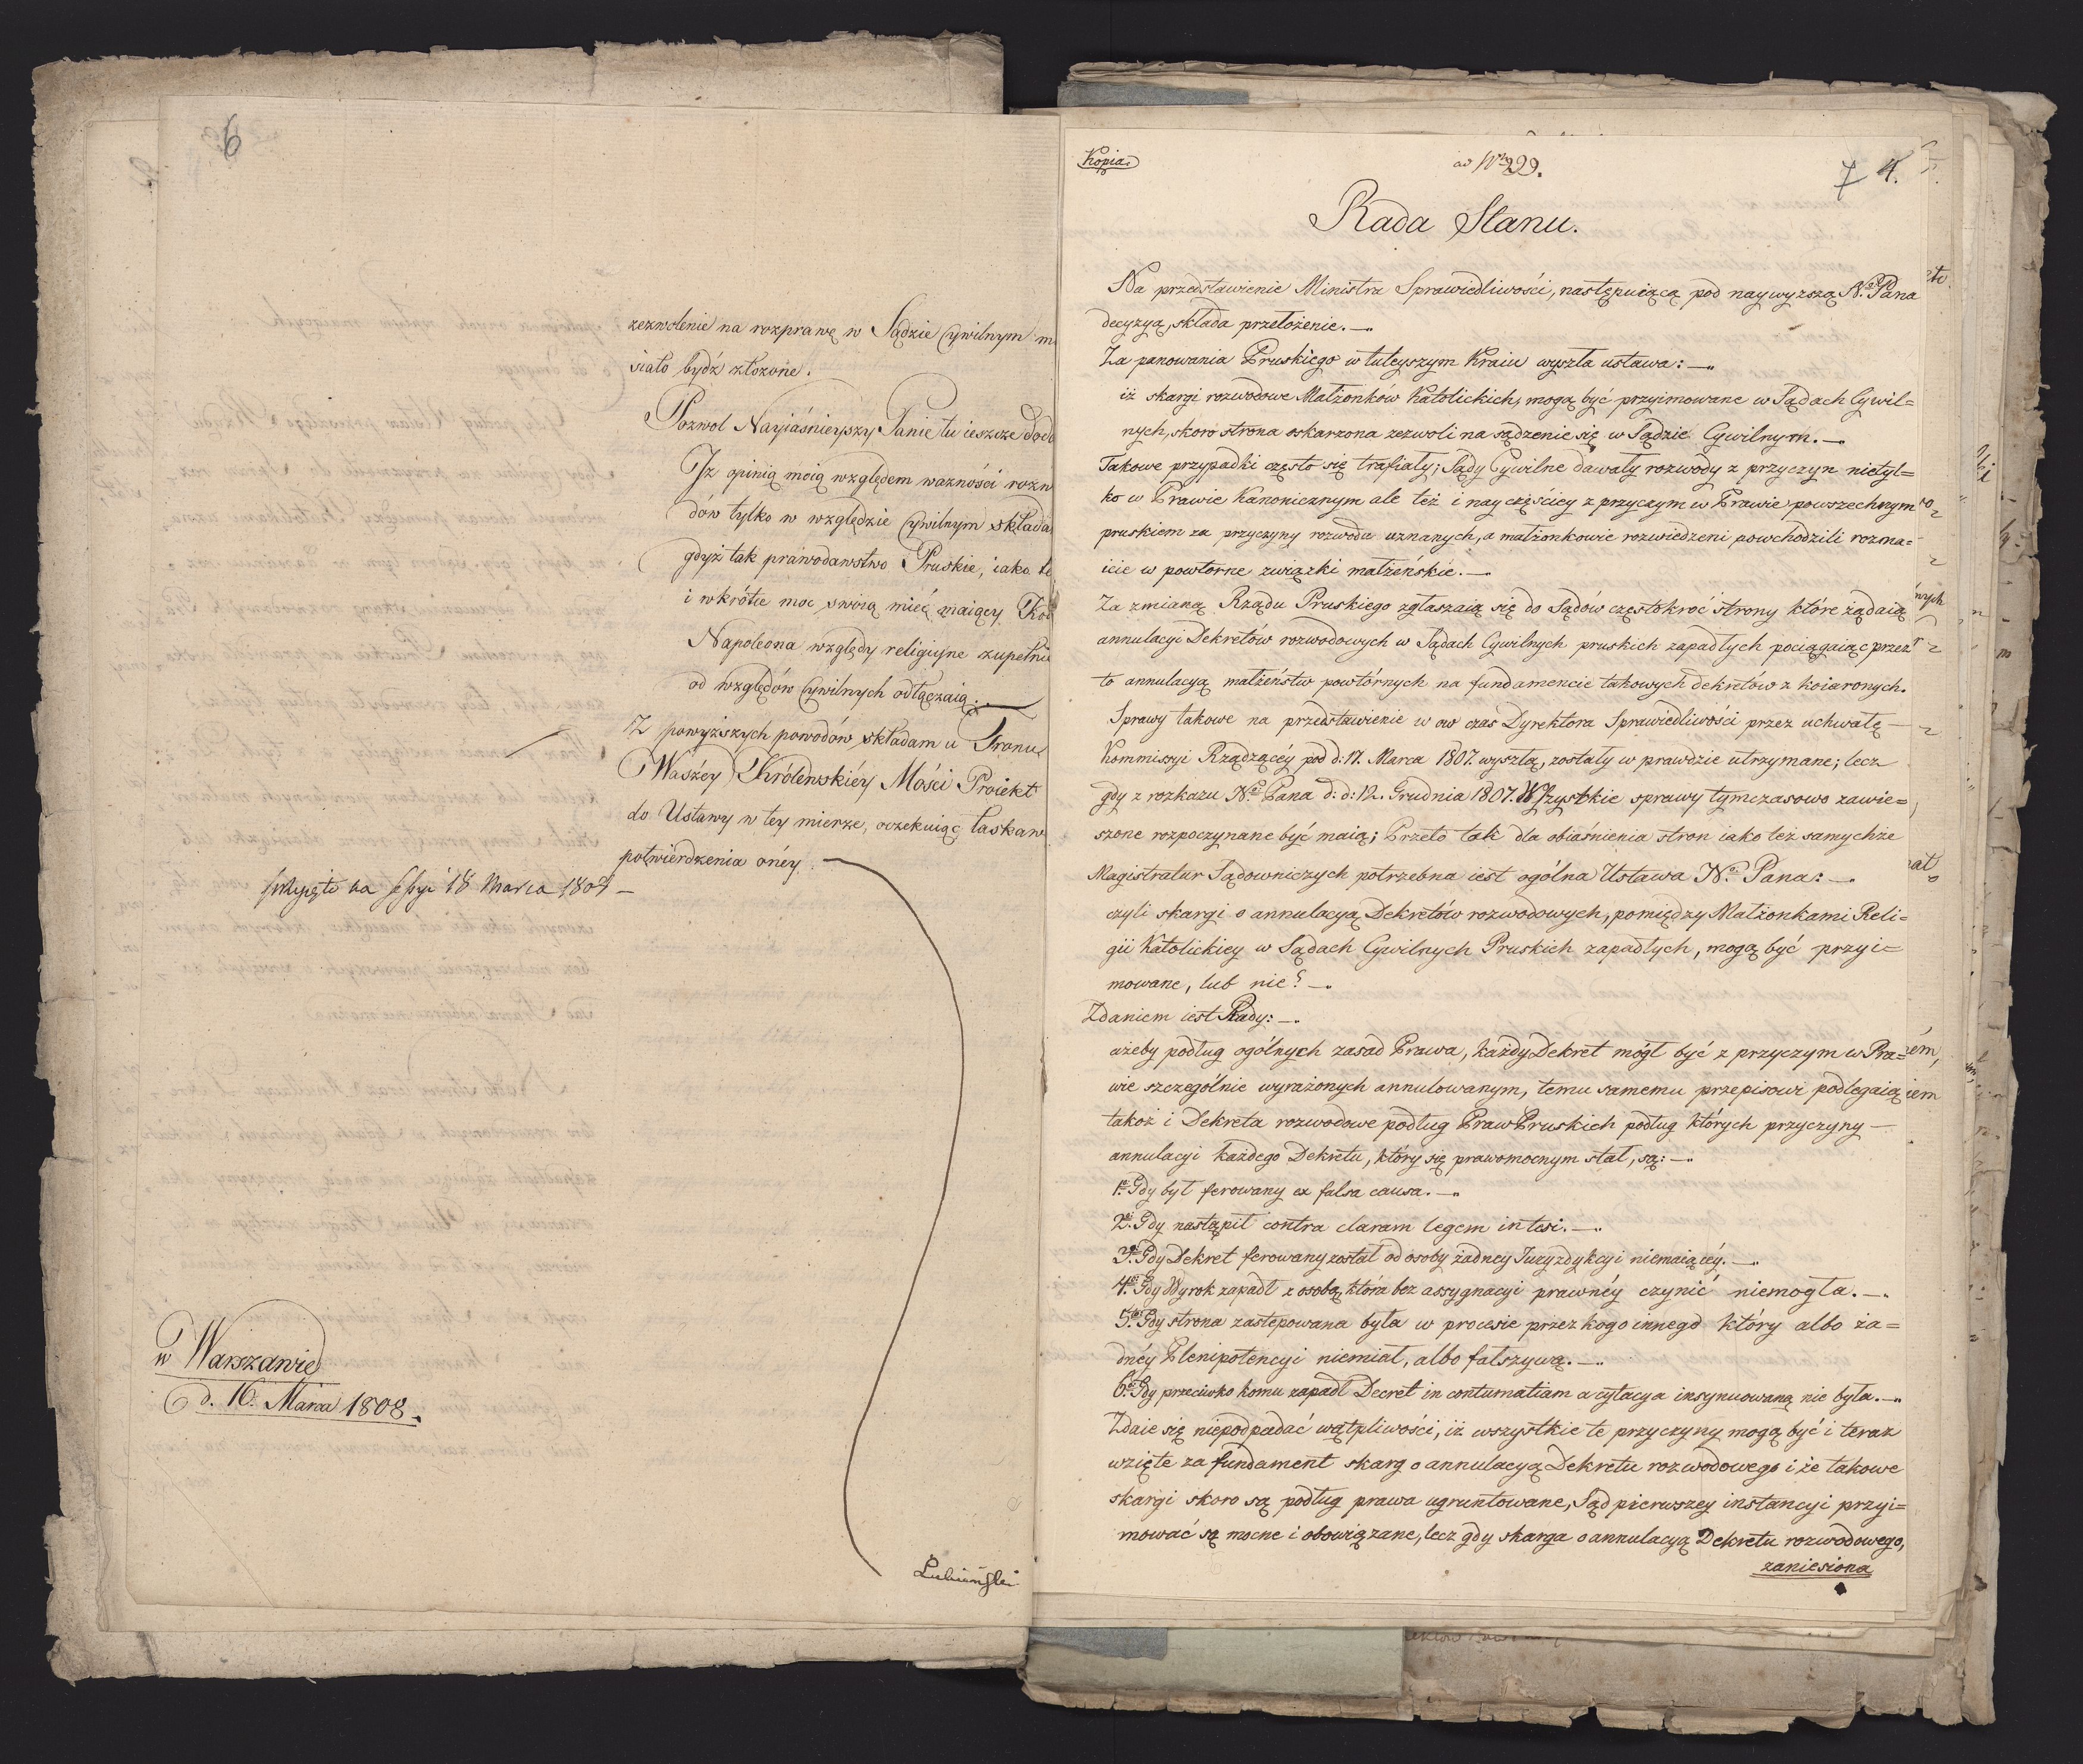 6
zezwolenie na rozprawę w Sądzie Cywilnym m
siało bydź złożone.
Pozwol Nayiáśnieyszy Panie tu ieszcze dod
Jż opinią moią względem ważności rozw
dów tylko w względzie Cywilnym składa
gdyż tak prawodawstwo Pruskie, iako te
i wkrótce moc swoią mieć maiący Kod
Napoleona względy religiyne zupełnie
od względów Cywilnych odłączaią.
Z powyższych powodów składam u Tronu
Waszey Królewskiéy Mości Proiekt
do Ustawy w tey mierze, oczekuiąc łaskaw
potwierdzenia onéy.
przyięto na Sessyi 18 Marca 1808
w Warszawie
d. 16. Marca 1808.
Lubieński
Kopia.
ad Nr 299.
7 4.
Rada Stanu.
Na przedstawienie Ministra Sprawiedliwości, następuiącą pod naywyższą N.º Pana
decyzyą, składa przełożenie.—.
Za panowania Pruskiego w tuteyszym Kraiu wyszła ustawa: —.
iż skargi rozwodowe Małżonków Katolickich, mogą być przyimowane w Sądach Cywil=
nych, skoro strona oskarzona zezwoli na sądzenie się w Sądzie Cywilnym.—.
Takowe przypadki często się trafiały; Sądy Cywilne dawały rozwody z przyczyn nietyl=
ko w Prawie Kanonicznym ale też i nayczęściey z przyczym w Prawie powszechnym
pruskiem za przyczyny rozwodu uznanych, a małżonkowie rozwiedzeni powchodzili rozma=
icie w powtorne związki małżeńskie.—.
Za zmianą Rządu Pruskiego zgłaszaią się do Sądów częstokroć strony które żądaią
annulacyi Dekretów rozwodowych w Sądach Cywilnych pruskich zapadłych pociągaiąc przez
to annulacyą małżeństw powtórnych na fundamencie takowych dekretów z koiaronych.
Sprawy takowe na przedstawienie w ow czas Dyrektora Sprawiedliwości przez uchwałę —
Kommissyi Rządzącéy pod d: 17. Marca 1807. wyszłą, zostały w prawdzie utrzymane; lecz
gdy z rozkazu N.º Pana d: d: 12. Grudnia 1807. Wszystkie sprawy tymczasowo zawie=
szone rozpoczynane być maią; Przeto tak dla obiaśnienia stron iako też samychże
Magistratur Sądowniczych potrzebna iest ogólna Ustawa N.º Pana: —.
czyli skargi o annulacyą Dekretów rozwodowych, pomiędzy Małżonkami Reli=
gii Katolickiey w Sądach Cywilnych Pruskich zapadłych, mogą być przyi=
mowane, lub nie? —.
Zdaniem iest Rady: —.
ażeby podług ogólnych zasad Prawa, każdy Dekret mógł być z przyczym w Pra=
wie szczególnie wyrażonych annulowanym, temu samemu przepisowi podlegaią
takoż i Dekreta rozwodowe podług Praw Pruskich podług których przyczyny —
annulacyi każdego Dekretu, który się prawomocnym stał, są: —.
1º Gdy był ferowany ex falsa causa. —.
2º Gdy nastąpił contra claram legem in tesi. —.
3º Gdy Dekret ferowany został od osoby żadney Juryzdykcyi niemaiącéy. —.
4º Gdy Wyrok zapadł z osobą, która bez assygnacyi prawnéy czynić niemogła. —.
5º Gdy strona zastepowana była w procesie przez kogo innego który albo ża=
dnéy Plenipotencyi niemiał, albo fałszywą. —.
6º Gdy przeciwko komu zapadł Decret in contumatiam a cytacya insynuowaną nie była. —.
Zdaie się niepodpadać wątpliwości, iż wszystkie te przyczyny mogą być i teraz
wzięte za fundament skarg o annulacyą Dekretu rozwodowego i że takowe
skargi skoro są podług prawa ugruntowane, Sąd pierwszey instancyi przyi=
mować są mocne i obowiązane, lecz gdy skarga o annulacyą Dekretu rozwodowego,
zaniesiona